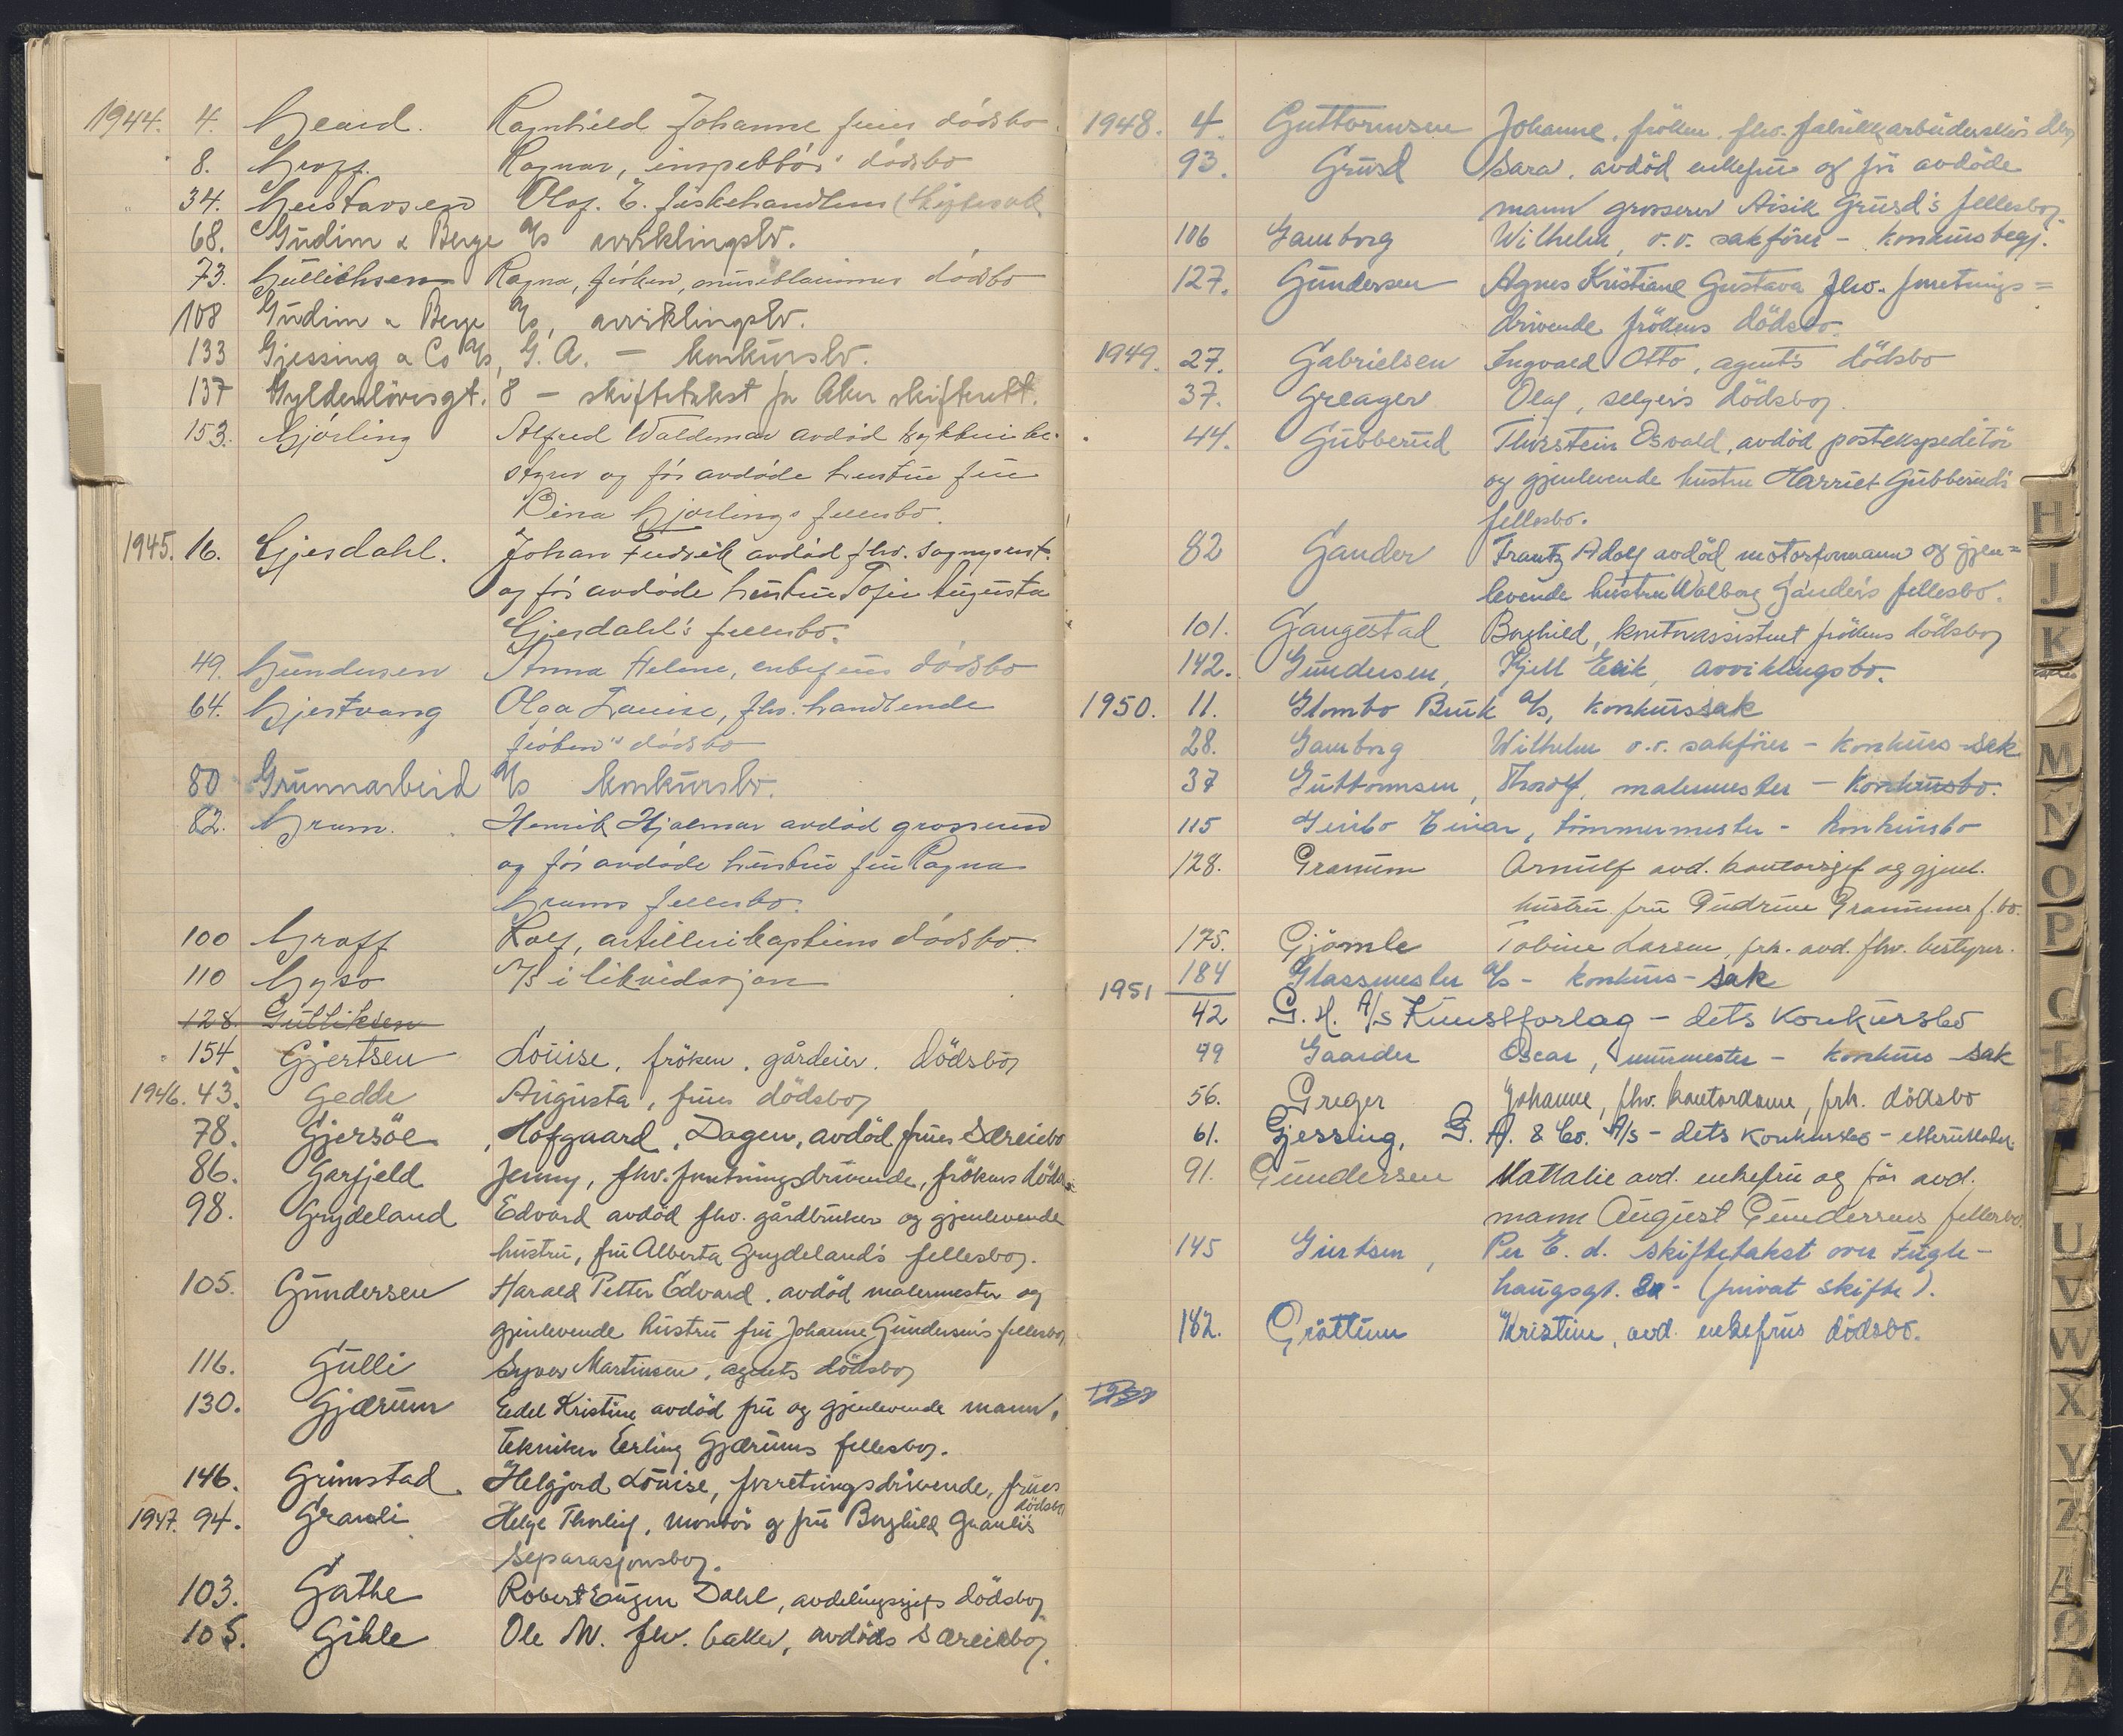 1944. 4. Geard. Ragnhild Johanne frues dødsbo.
8. Graff. Ragnar, inspektør's dødsbo
34. Gustavsen Olaf. E. fiskehandlers
68. Gudim & Berge A/s avviklingsbo.
73. Gullichsen Ragna, frøken, dødsbo
108 Gudim & Berge A/s, avviklingsbo.
133 Gjessing & Co A/s, G. A. — konkursbo.
137 Gyldenløvesgt. 8 — skiftetakst for Aker skifterett.
153. Gjørling Alfred Waldemar avdød be-
styrer og før avdøde hustru fru
Dina Gjørlings fellesbo.
1945. 16. Gjesdahl. Johan Fredrik avdød fhv.
og før avdøde hustru Augusta
Gjesdahl's fellesbo.
49. Gundersen Anna Helene, enkefrues dødsbo
64. Gjestvang Olga Louise, fhv. handlende
frøken's dødsbo
80 Grunnarbeid A/s konkursbo.
82. Gram. Henrik Hjalmar avdød grosserer
og før avdøde hustru fru Ragna
Grams fellesbo.
100 Graff Rolf, artillerikapteins dødsbo.
110 Gyso A/s i likvidasjon
128. Gulliksen
154. Gjertsen Louise, frøken, gårdeier. dödsboj
1946. 43. Gedde Augusta, frues dödsboj
78. Gjersöe, Hofgaard, Dagen, avdöd frues Særeiebo
86. Garfjeld Jenny, fhv. forretningsdrivende, frökens döds
98. Grydeland Edvard avdöd fhv. gårdbruker og gjenlevende
hustru, fru Alberta Grydeland's fellesboj.
105. Gundersen Harald Petter Edvard. avdöd malermester og
gjenlevende hustru fru Johanne Gundersen's fellesboj
116. Gulli Syver Martinsen, agents dödsboj
130. Gjærum Eedel Kristine avdöd fru og gjenlevende mann,
tekniker Erling Gjærums fellesboj.
146. Grimstad. Helgjerd Louise, forretningsdrivende, frues
dödsboj
1947. 94. Granli Helge Thorleif, montör og fru Borghild Granli's
separasjonsboj.
103. Gathe Robert Eugen Dahl, avdelingssjefs dödsboj
105. Gihle Ole M. fhv. baker, avdöds Særeieboj.
1948. 4. Guttormsen Johanne, fröken, fhv. fabrikkarbeiderskes dbo
93. Grusd Sara, avdöd enkefru og för avdöde
mann grosserer Aisik Grusd's fellesboj.
106 Gamborg Wilhelm, o.r. sakförer - konkursbegj.
127. Gundersen Agnes Kristiane Gustava fhv. forretnings=
drivende frökens dödsbo.
1949. 27. Gabrielsen Ingvald Otto, agent's dödsbo
37. Greager Olaf, selger's dödsboj.
44. Gubberud Thorstein Osvald, avdöd postekspeditör
og gjenlevende hustru Harriet Gubberud's
fellesbo.
82 Gander Frantz Adolf avdöd motorformann og gjen=
levende hustru Walborg Gander's fellesbo.
101. Gangestad Borghild, kontorassistent frökens dödsboj
142. Gundersen, Kjell Erik, avviklingsbo.
1950. 11. Glombo Bruk A/s, konkurssak
28. Gamborg Wilhelm o.r. sakförer - konkurs-sak
37 Guttormsen, Thorolf, malermester — konkursbo.
115 Einar, tömmermester - konkursbo
128. Granum Arnulf avd. kontorsjef og gjenl.
hustru fru Gudrun Granums f.bo.
175. Gjömle Tobine Larsen, frk. avd. fhv. bestyrer.
184 Glassmester A/s - konkurs-sak
1951 42 G. H. A/s Kunstforlag - dets konkursbo
49 Gaarder Oscar, murmester - konkurs-sak
56. Greger Johanne, fhv. kontordame, frk. dödsbo
61. Gjessing, G. A. & Co. A/s - dets konkursbo -
91. Gundersen Nathalie avd. enkefru og för avd.
mann August Gundersens fellesbo.
145 Giertsen, Per E. d. skiftetakst over Fugle-
haugsgt. - (privat skifte).
182. Gröttum Kristine, avd. enkefrus dödsbo.
H
J
K
M
N
O
P
U
V
W
X
Y
Z
Æ
Ø
Å